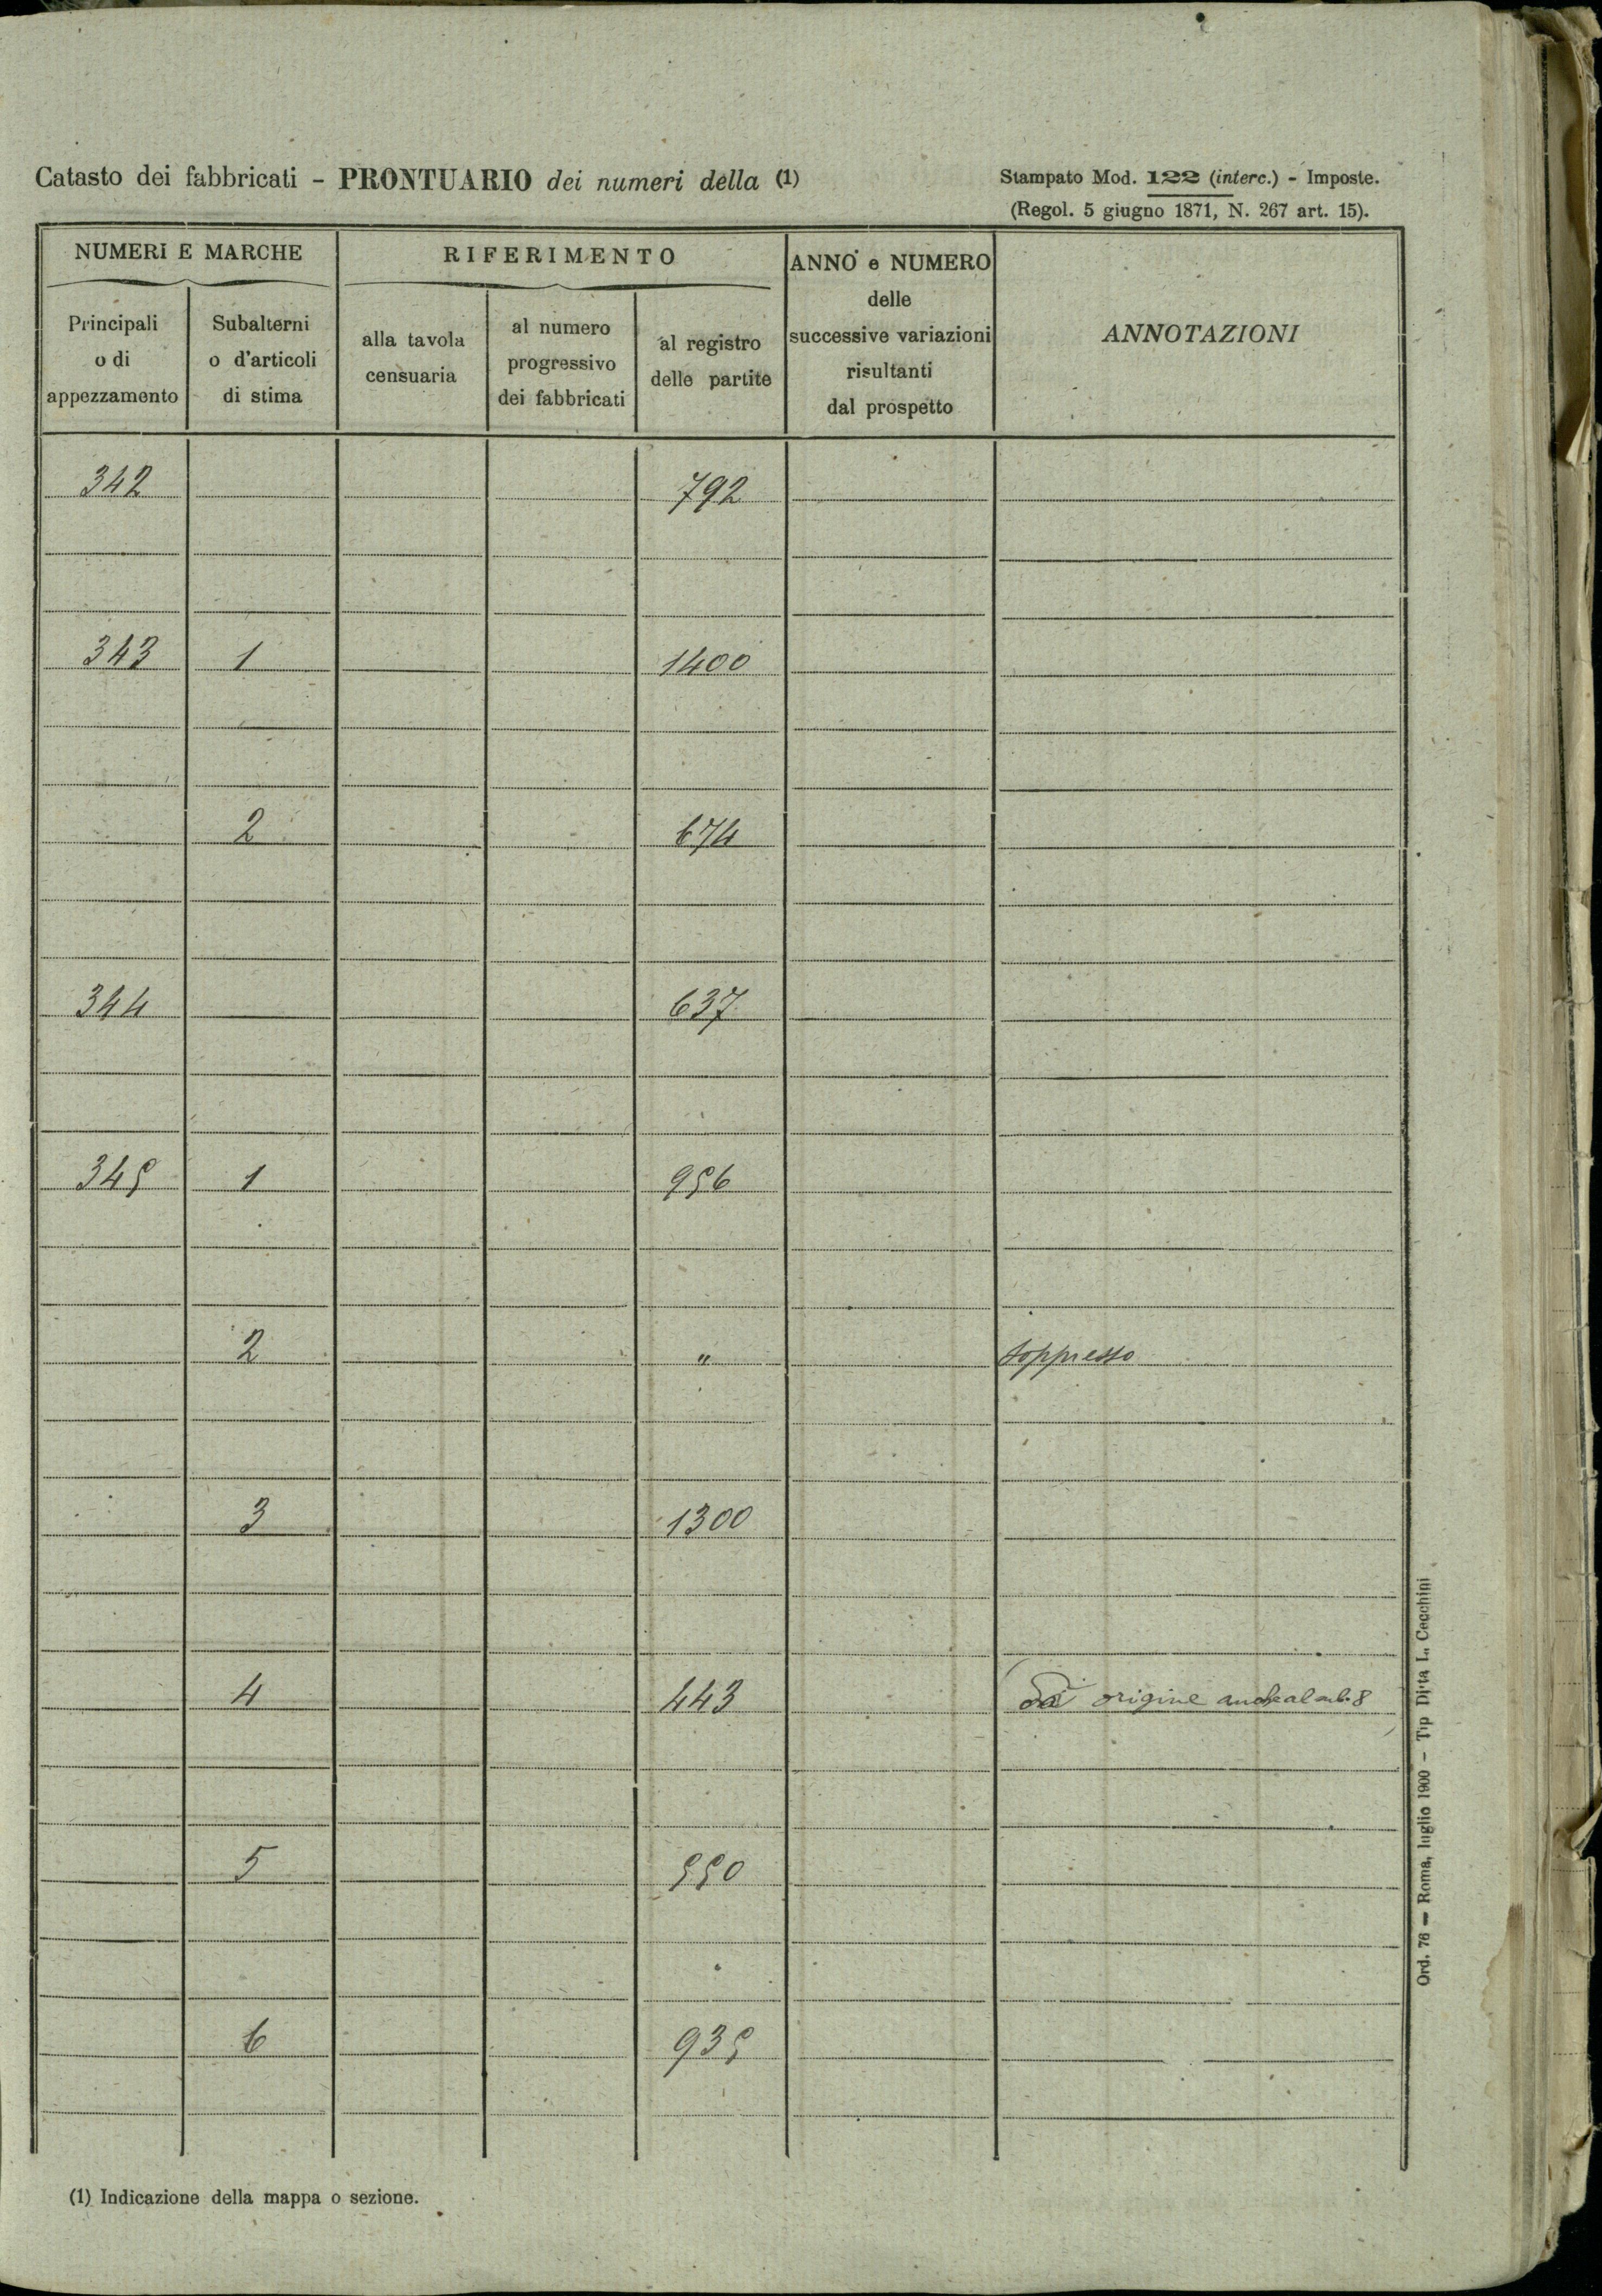 Catasto dei fabbricati - PRONTUARIO dei numeri della (1)
Stampato Mod. 122 (interc.) - Imposte.
(Regol. 5 giugno 1871, N. 267 art. 15).
NUMERI E MARCHE
RIFERIMENTO
ANNO e NUMERO
delle
successive variazioni
risultanti
dal prospetto
ANNOTAZIONI
Principali
o di
appezzamento
Subalterni
o d'articoli
di stima
alla tavola
censuaria
al numero
progressivo
dei fabbricati
al registro
delle partite
342 792
343 1 1400
2 674
344 637
345 1 956
2 " soppresso
3 1300
4 443 Dà origine anche al sub. 8
5 550
6 935
(1) Indicazione della mappa o sezione.
Ord. 76 - Roma, luglio 1900 - Tip Ditta L. Cecchini